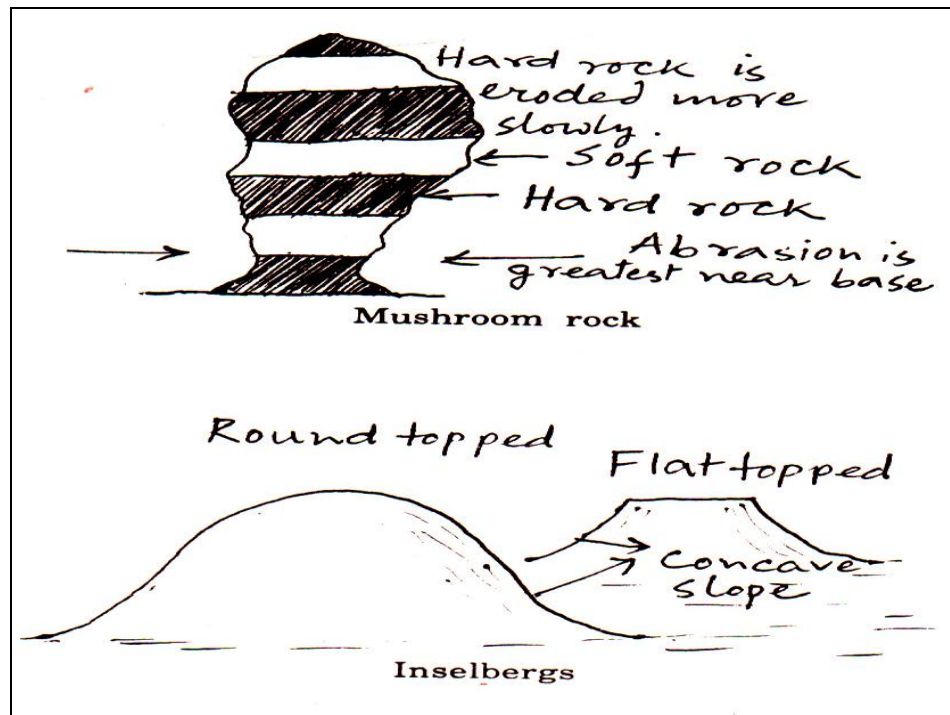 Hard rock is
eroded more
slowly.
Soft rock
Hard rock
Abrasion is
greatest near base
Mushroom rock
Round topped
Flat topped
Concave
slope
Inselbergs